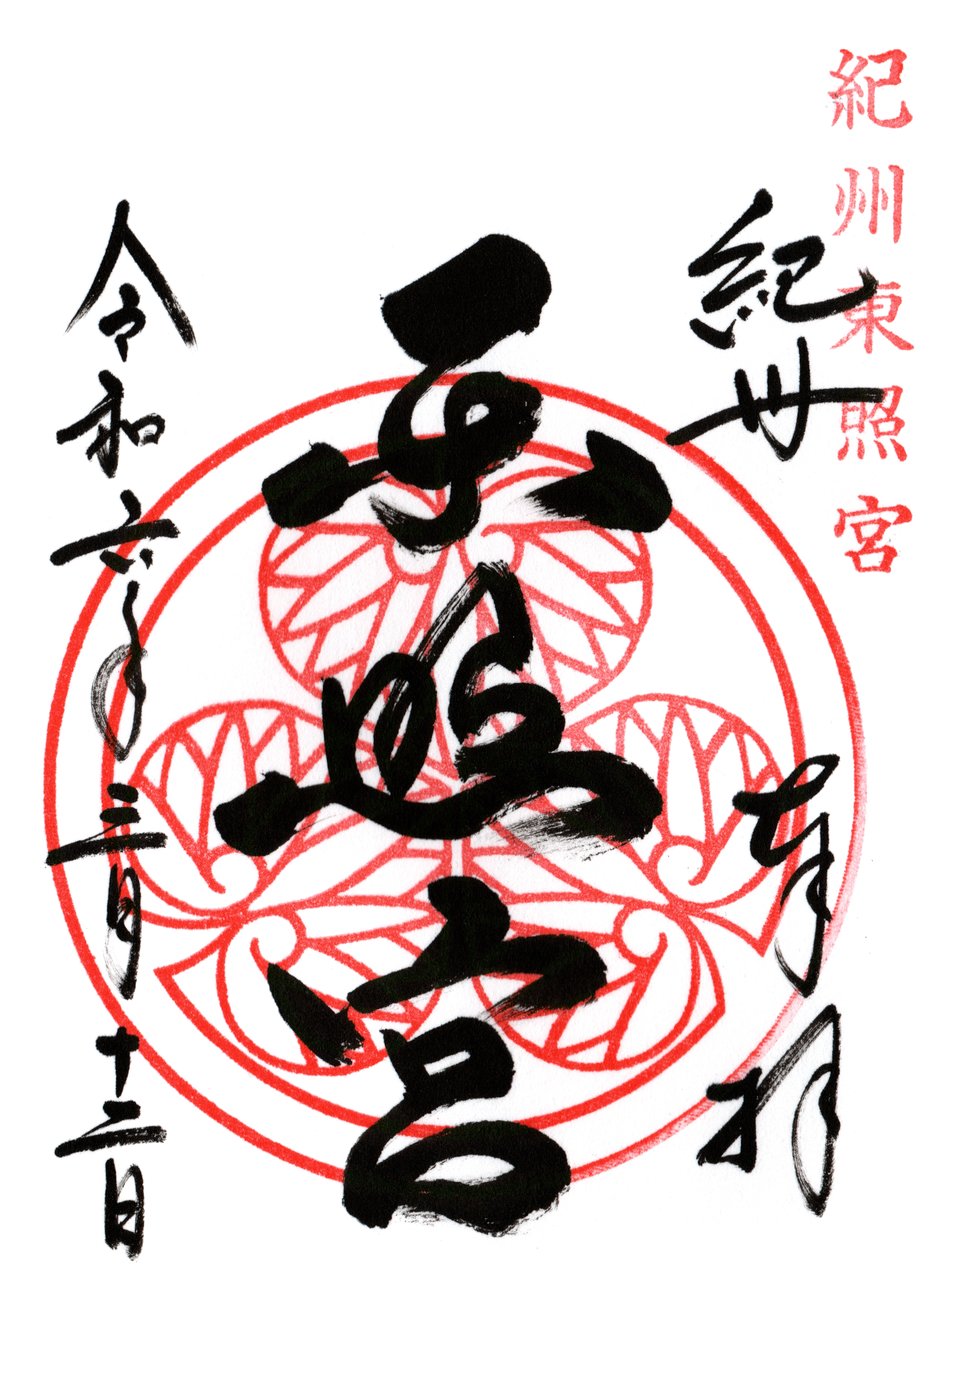 紀州東照宮
紀州
奉拝
東照宮
令和六年三月十二日